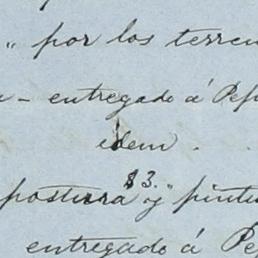 " por los terren
- entregado á Pep
idem .
postura 83." y pintu
entregado á Pe